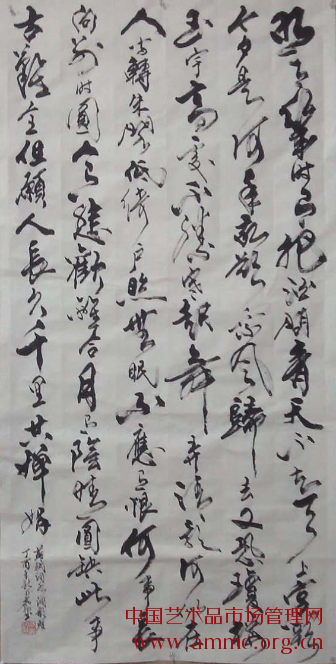 明月幾時有把酒問青天不知天上宮闕
今夕是何年我欲乘風歸去又恐瓊樓
玉宇高處不勝寒起舞弄清影何似在
人間轉朱閣低綺戶照無眠不應有恨何事長
向別時圓人有悲歡離合月有陰晴圓缺此事
古難全但願人長久千里共嬋娟
蘇軾詞水調歌頭
丁酉年秋
中国艺术品市场管理
www.ammc.org.cn